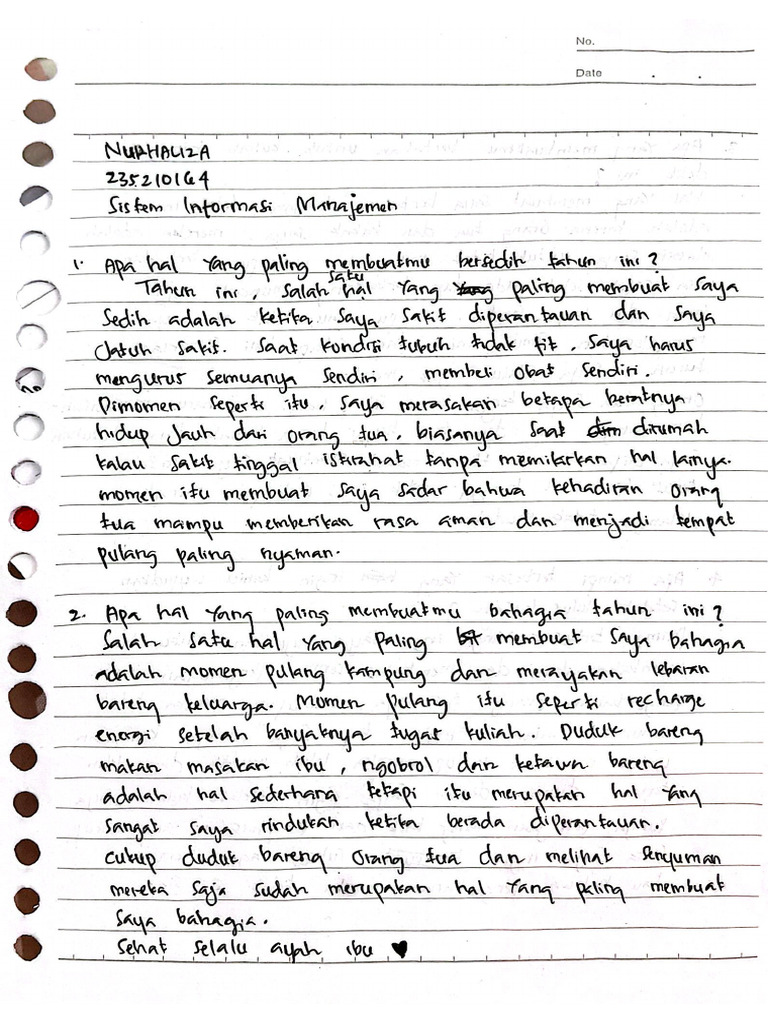 No.
Date . .
NURHALIZA
235210164
Sistem Informasi Manajemen
1. Apa hal yang paling membuatmu bersedih tahun ini?
Tahun ini, salah satu hal yang paling membuat saya
sedih adalah ketika saya sakit diperantauan dan saya
Jatuh sakit. saat kondisi tubuh tidak fit, saya harus
mengurus semuanya sendiri, membeli obat sendiri.
Dimomen seperti itu, saya merasakan betapa beratnya
hidup Jauh dari orang tua, biasanya saat dirumah
kalau sakit tinggal istirahat tanpa memikirkan hal lainya.
momen itu membuat saya sadar bahwa kehadiran orang
tua mampu memberikan rasa aman dan menjadi tempat
pulang paling nyaman.
2. Apa hal yang paling membuatmu bahagia tahun ini?
Salah satu hal yang paling membuat saya bahagia
adalah momen pulang kampung dan merayakan lebaran
bareng keluarga. Momen pulang itu seperti recharge
energi setelah banyaknya tugas kuliah. Duduk bareng
makan masakan ibu, ngobrol dan ketawa bareng
adalah hal sederhana tetapi itu merupakan hal yang
sangat saya rindukan ketika berada diperantauan.
cukup duduk bareng orang tua dan melihat senyuman
mereka saja sudah merupakan hal yang paling membuat
saya bahagia.
Sehat selalu ayah ibu ♥